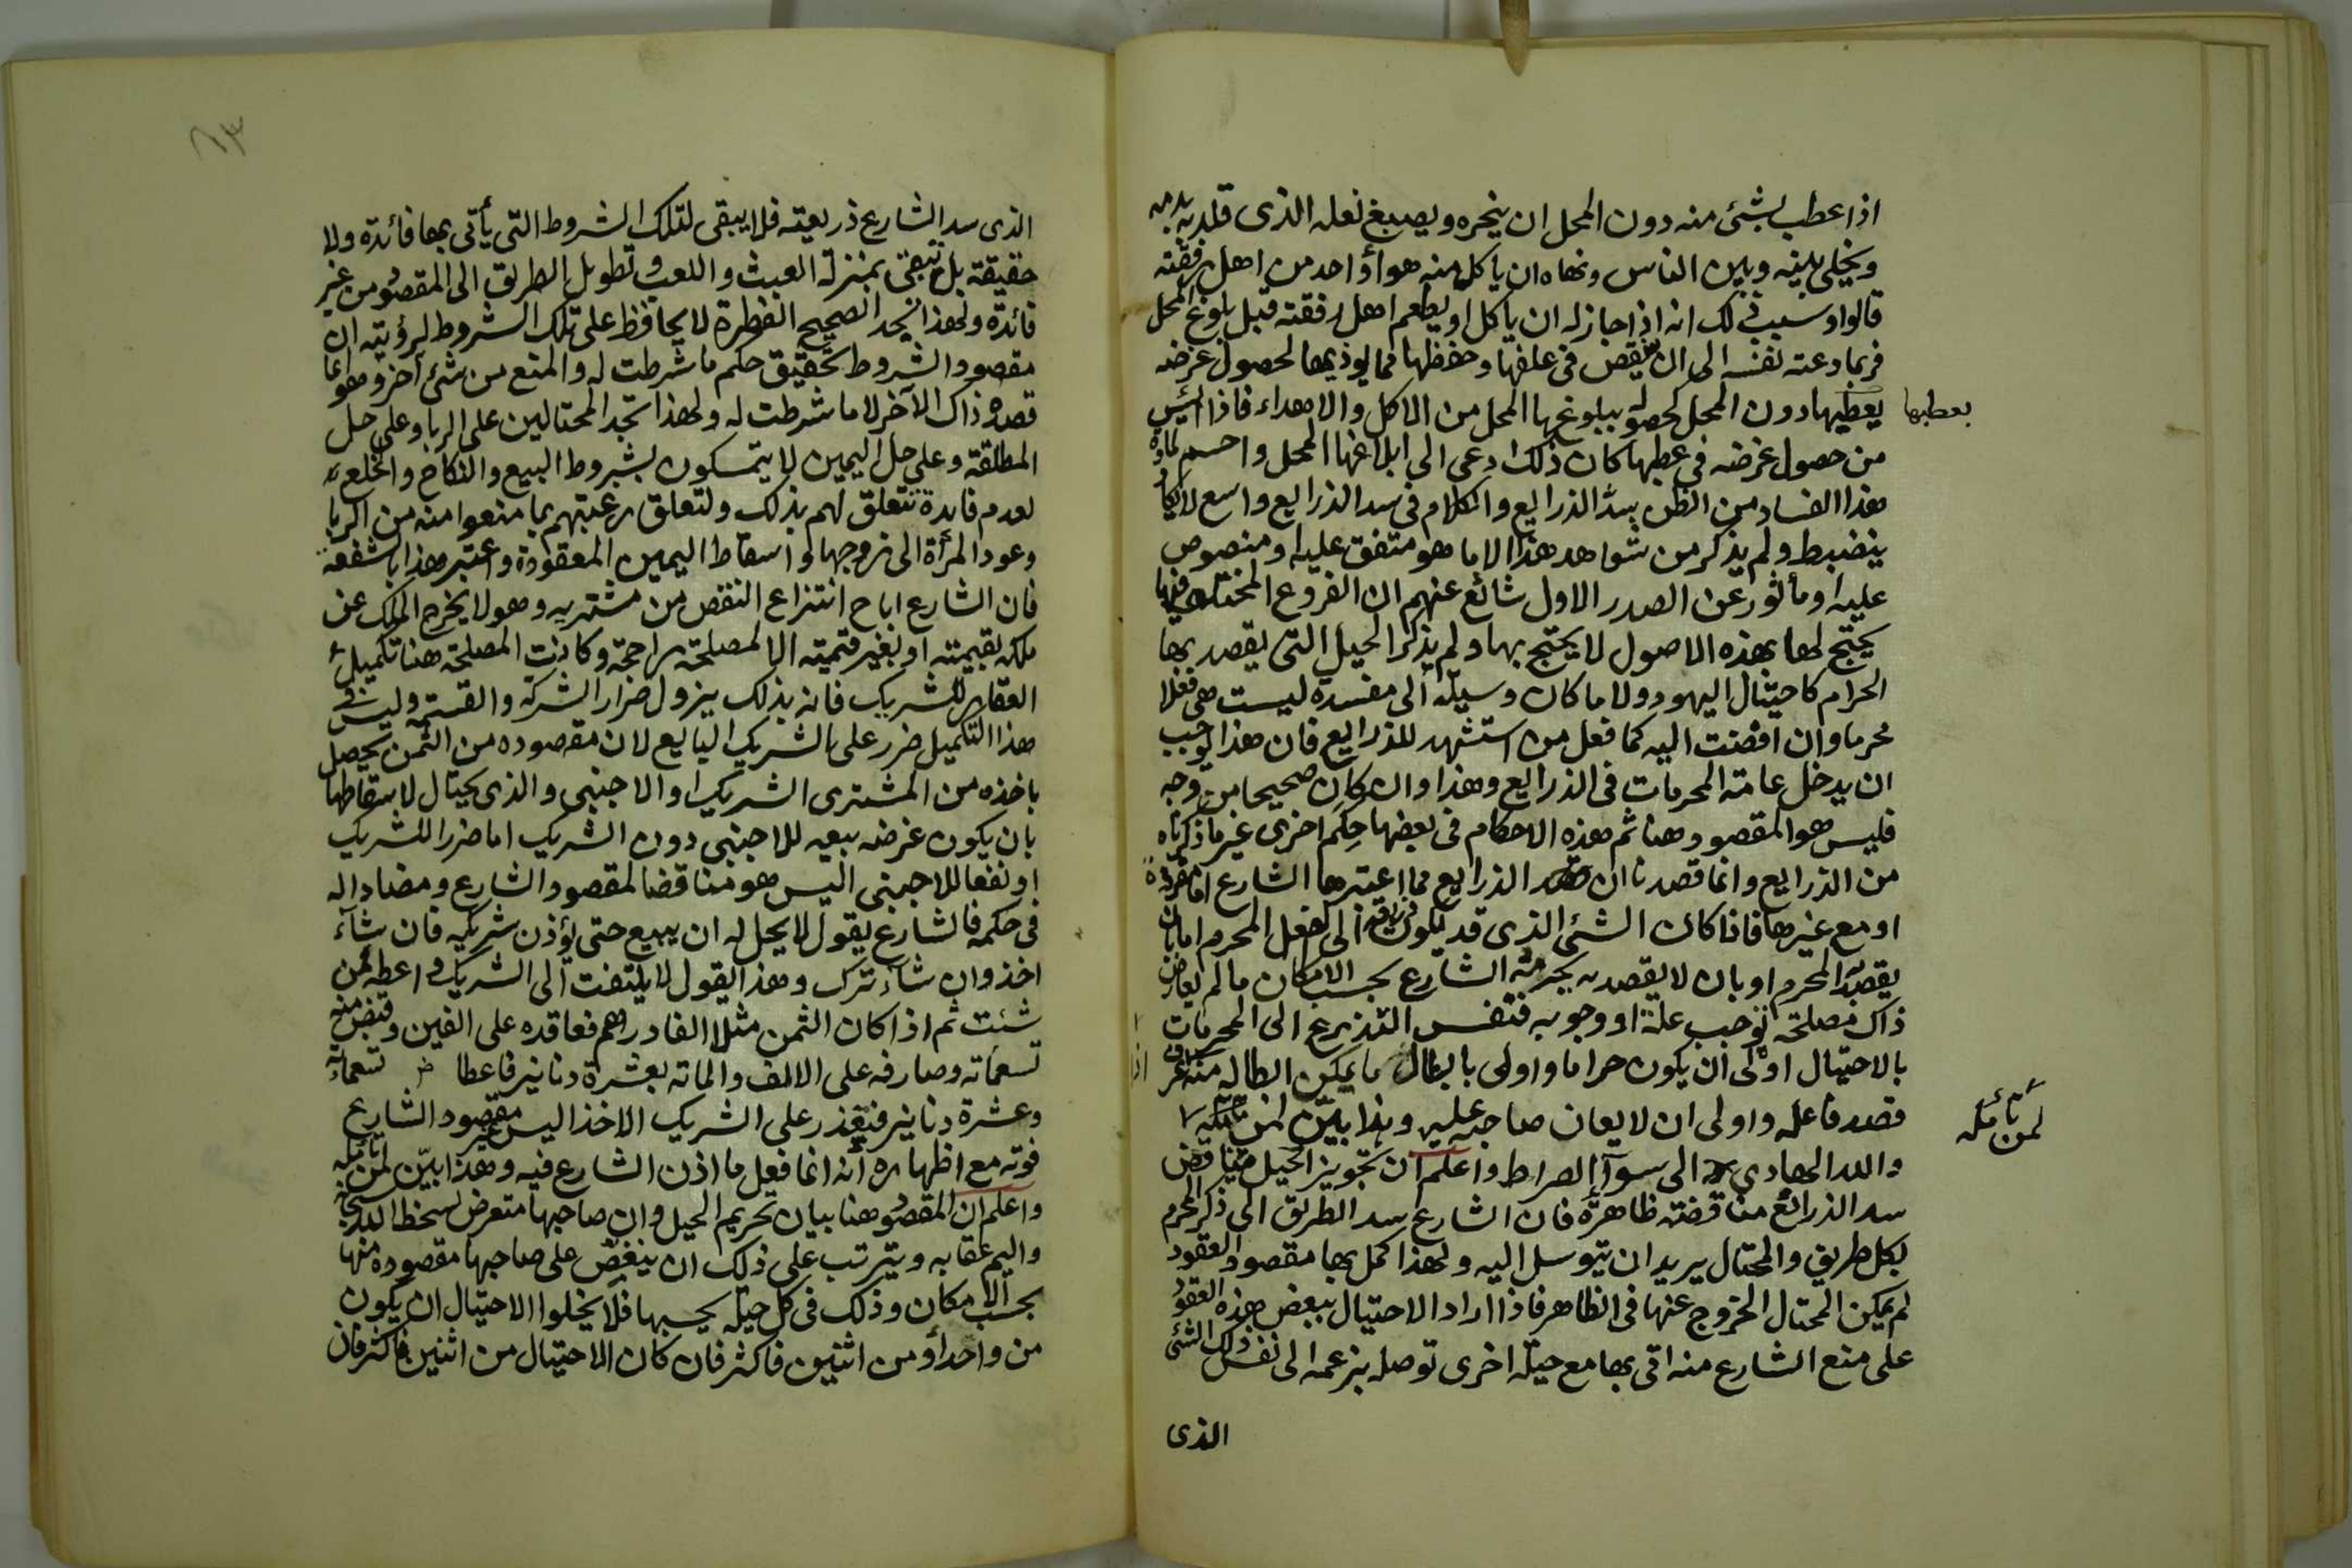 اذا عطب بشئ منه دون المحل ان ينحره ويصبغ نعله الذى قلده به بدمه
ويخلى بينه وبين الناس ونهاه ان ياكل منه هو أو احد من اهل رفقته
قالوا وسبب ذلك انه اذا جاز له ان ياكل او يطعم اهل رفقته قبل بلوغ المحل
فربما دعته نفسه الى ان يقصر فى علفها وحفظها مما يوذيها لحصول غرضه
بعطبها دون المحل كحصوله ببلوغها المحل من الاكل والاهداء فاذا ايئس
بعطبها
من حصول غرضه فى عطبها كان ذلك ادعى الى ابلاغها المحل واحسم لمادة
هذا الفساد من الظن بسد الذرايع والكلام فى سد الذرايع واسع لا يكاد
ينضبط ولم يذكر من شواهد هذا الا ما هو متفق عليه او منصوص
عليه او مأثور عن الصدر الاول شائع عنهم ان الفروع المختلف فيها
يحتج لها بهذه الاصول لا يحتج بها ولم يذكر الحيل التى يقصد بها
الحرام كاحتيال اليهود ولا ما كان وسيلة الى مفسدة ليست هى فعلا
محرما وان افضت اليه كما فعل من استشهد للذرايع فان هذا يوجب
ان يدخل عامة المحرمات فى الذرايع وهذا وان كان صحيحا من وجه
فليس هو المقصود هنا ثم هذه الاحكام فى بعضها حِكم اخرى غير ما ذكرناه
من الذرايع وانما قصدنا ان الذرايع مما اعتبرها الشارع اما مفردة
او مع غيرها فاذا كان الشئ الذى قد يكون ذريعة الى الفعل المحرم اما بان
يقصد به المحرم او بان لا يقصد به يحرمه الشارع بحسب الامكان ما لم يعارض
ذاك مصلحة توجب حله او وجوبه فنفس التذرع الى المحرمات
بالاحتيال اولى ان يكون حراما واولى بابطال ما يمكن ابطاله منه اذا عرف
قصد فاعله واولى ان لا يعان صاحبه عليه وهذا بيّن لمن تأمله
لمن تأمله
والله الهادي الى سوآء الصراط واعلم ان تجويز الحيل يناقض
سد الذرائع مناقضة ظاهرة فان الشارع سد الطريق الى ذكر المحرم
بكل طريق والمحتال يريد ان يتوسل اليه ولهذا كمل بها مقصود العقود
لم يمكن المحتال الخروج عنها فى الظاهر فاذا اراد الاحتيال ببعض هذه العقود
على منع الشارع منه اتى بها مع حيلة اخرى توصله بزعمه الى نفس ذلك الشئ
الذى
٨٣
الذى سد الشارع ذريعته فلا يبقى لتلك الشروط التى يأتى بها فائدة ولا
حقيقة بل تبقى بمنزلة العبث واللعب وتطويل الطريق الى المقصود من غير
فائدة ولهذا تجد الصحيح الفطرة لا يحافظ على تلك الشروط لرؤيته ان
مقصود الشروط تحقيق حكم ما شرطت له والمنع من شئ آخر وهو انما
قصده ذاك الآخر لا ما شرطت له ولهذا تجد المحتالين على الربا وعلى حل
المطلقة وعلى حل اليمين لا يتمسكون بشروط البيع والنكاح والخلع
لعدم فايدة تتعلق لهم بذلك ولتعلق رغبتهم بما منعوا منه من الربا
وعود المرأة الى زوجها واسقاط اليمين المعقودة واعتبر هذا بالشفعة
فان الشارع اباح انتزاع النقص من مشتريه وهو لا يخرج الملك عن
ملكه بقيمته او بغير قيمته الا لمصلحة راجحة وكانت المصلحة هنا تكميل
العقار للشريك فانه بذلك يزول ضرار الشركة والقسمة وليس فى
هذا التكميل ضرر على الشريك البايع لان مقصوده من الثمن يحصل
باخذه من المشترى الشريك او الاجنبى والذى يحتال لاسقاطها
بان يكون غرضه بيعه للاجنبى دون الشريك اما ضررا للشريك
او نفعا للاجبنى اليس هو مناقضا لمقصود الشارع ومضادا له
فى حكمه فالشارع يقول لا يحل له ان يبيع حتى يؤذن شريكه فان شآء
اخذ وان شاء ترك وهذا يقول لا يلتفت الى الشريك واعطه لمن
شئت ثم اذا كان الثمن مثلا الفا درهم فعاقده على الفين وقبض منه
تسعمائة وصارفه على الالف والمائة بعشرة دنانير فاعطا تسعمائة
وعشرة دنانير فتعذر على الشريك الاخذ اليس مقصود الشارع
فوته مع اظهاره أنه انما فعل ما اذن الشارع فيه وهذا بيّن لمن تأمله
واعلم ان المقصود هنا بيان تحريم الحيل وان صاحبها متعرض لسخط الله سبحانه
واليم عقابه ويترتب على ذلك ان ينغص على صاحبها مقصوده منها
بحسب الامكان وذلك فى كل حيلة بحسبها فلا يخلوا الاحتيال ان يكون
من واحد أو من اثنين فاكثر فان كان الاحتيال من اثنين فاكثر فان